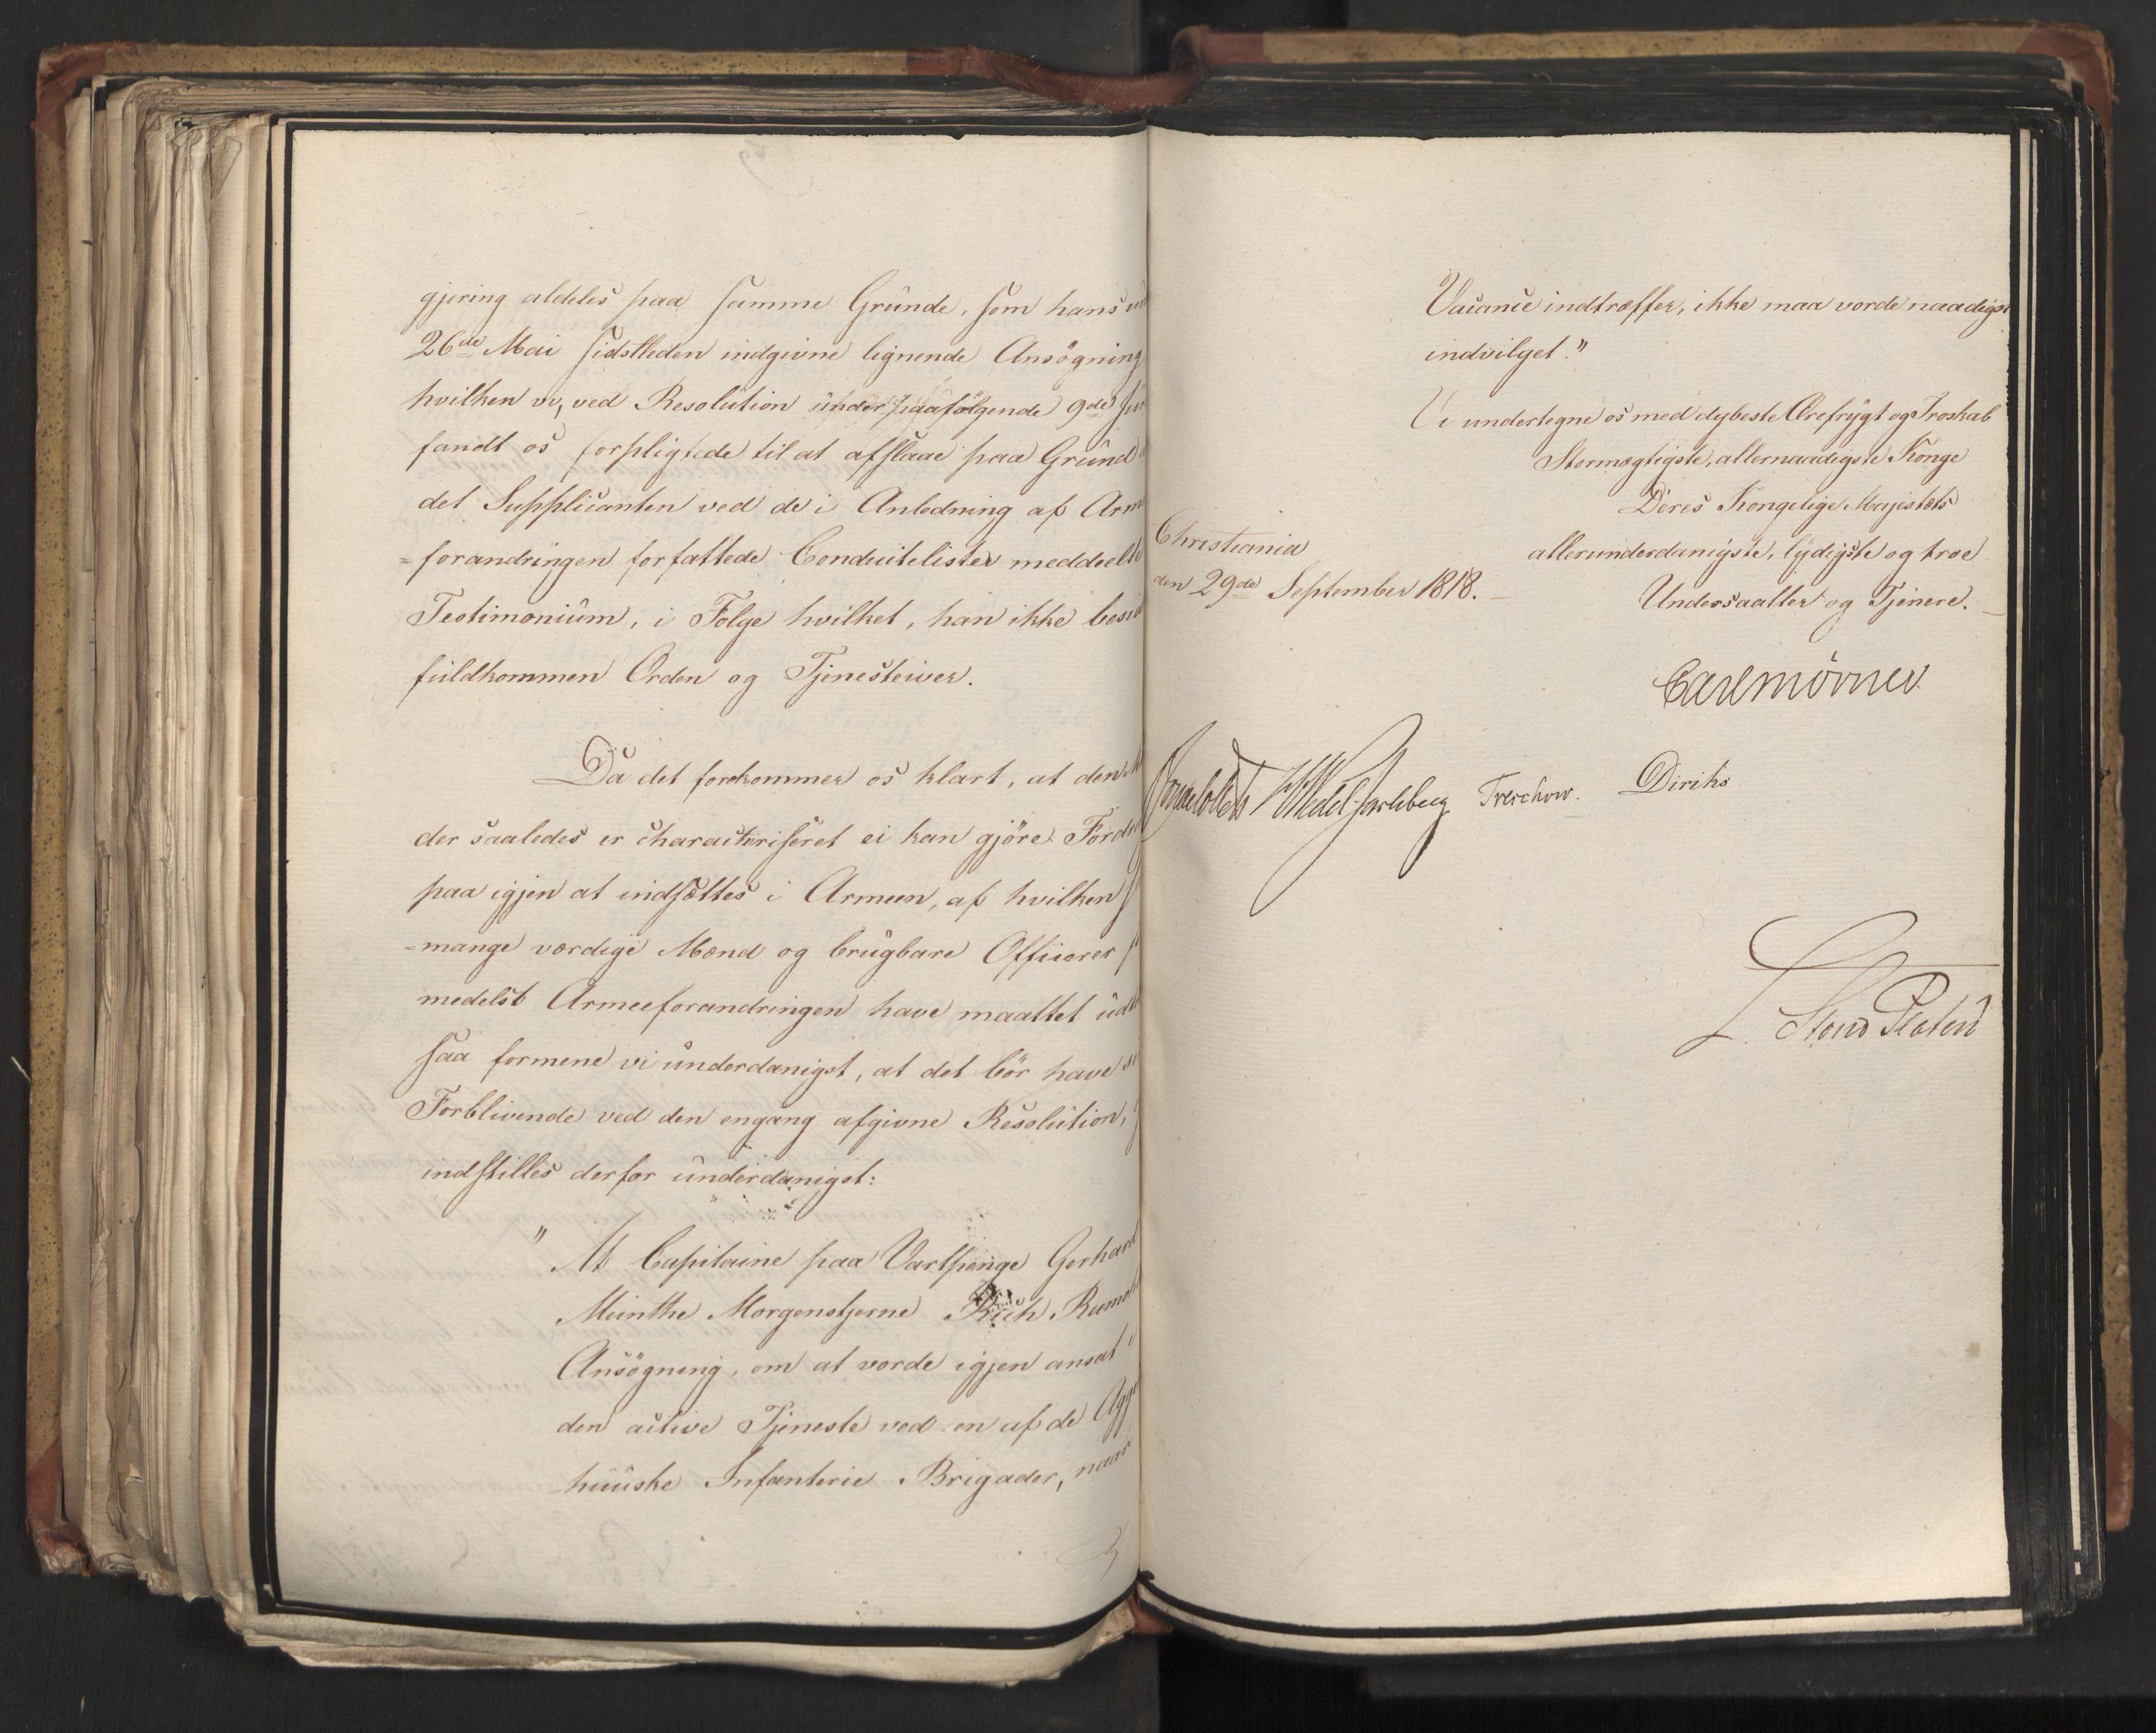 gjering aldeles paa samme Grunde, som hans
26de Mai sidstleden indgivne lignende Ansögning
hvilken vi, ved Resolution under paafölgende 9de
fandt os forpligtede til at afslaae paa Grund
det Supplicanten ved de i Anledning af Arm
=forandringen forfattede Conduitelister meddeelte
Testimonium, i Folge hvilket, han ikke
fuldkommen Orden og Tjenesteiver.
Da det forekommer os klart, at den
der saaledes er characteriseret ei kan gjöre Ford
paa igjen at indsættes i Armeen, af hvilken
=mange værdige Mænd og brugbare Officerer
medelst Armeeforandringen have maattet
saa formene vi underdanigst, at det bör have
Forblivende ved den engang afgivne Resolution,
indstilles derfor underdanigst:
" At Capitaine paa Vartpenge Gerhard
Munthe Morgenstjerne Rumo
Ansögning, om at vorde igjen ansat i
den active Tjeneste ved en af de Agg
huuske Infanterie Brigader, naar
Vacance indtræffer, ikke maa vorde naadigst
indvilget."
Vi undertegne os med dybeste Ærefrygt og Troskab
Stormægtigste, allernaadigste Konge
Deres Kongelige Majestæts
Christiania allerunderdanigste, lydigste og troe
den 29de September 1818. Undersaatter og Tjenere.
Carl Mörner
Wedel Jarlsberg Treschow. Diriks
Platou